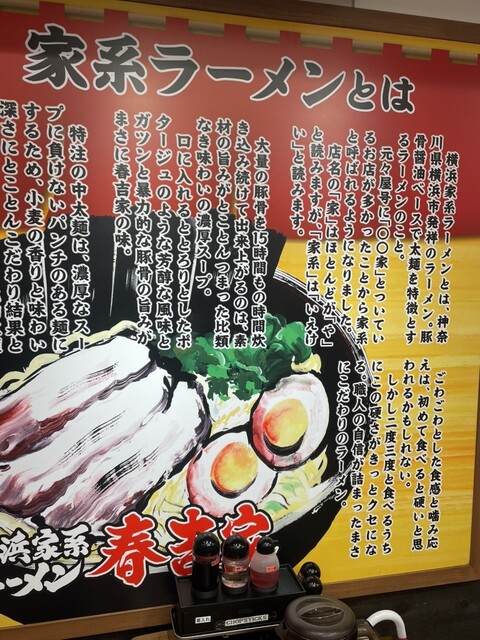 家系ラーメンとは
横浜家系ラーメンとは、神奈
川県横浜市発祥のラーメン。豚
骨醤油ベースで太麺を特徴とす
るラーメンのこと。
元々屋号に「〇〇家」とついてい
るお店が多かったことから家系
と呼ばれるようになりました。
店名の「家」はほとんどが、「や」
と読みますが、「家系」は「いえけ
い」と読みます。
大量の豚骨を15時間もの時間炊
き込み続けて出来上がるのは、素
材の旨みがとことんつまった比類
なき味わいの濃厚スープ。
口に入れるととろりとしたポ
タージュのような芳醇な風味と
ガツンと暴力的な豚骨の旨みが
まさに春吉家の味。
特注の中太麺は、濃厚なスー
プに負けないパンチのある麺に
するため、小麦の香りと味わい
深さにとことんこだわり結果と
ごわごわとした食感と噛み応
えは、初めて食べると硬いと思
われるかもしれない。
しかし二度三度と食べるうち
にこの硬さがきっとクセにな
る。職人の自信が詰まったまさ
にこだわりのラーメン。
浜家系
ラーメン
春吉家
箸入れ
CHOPSTICKS